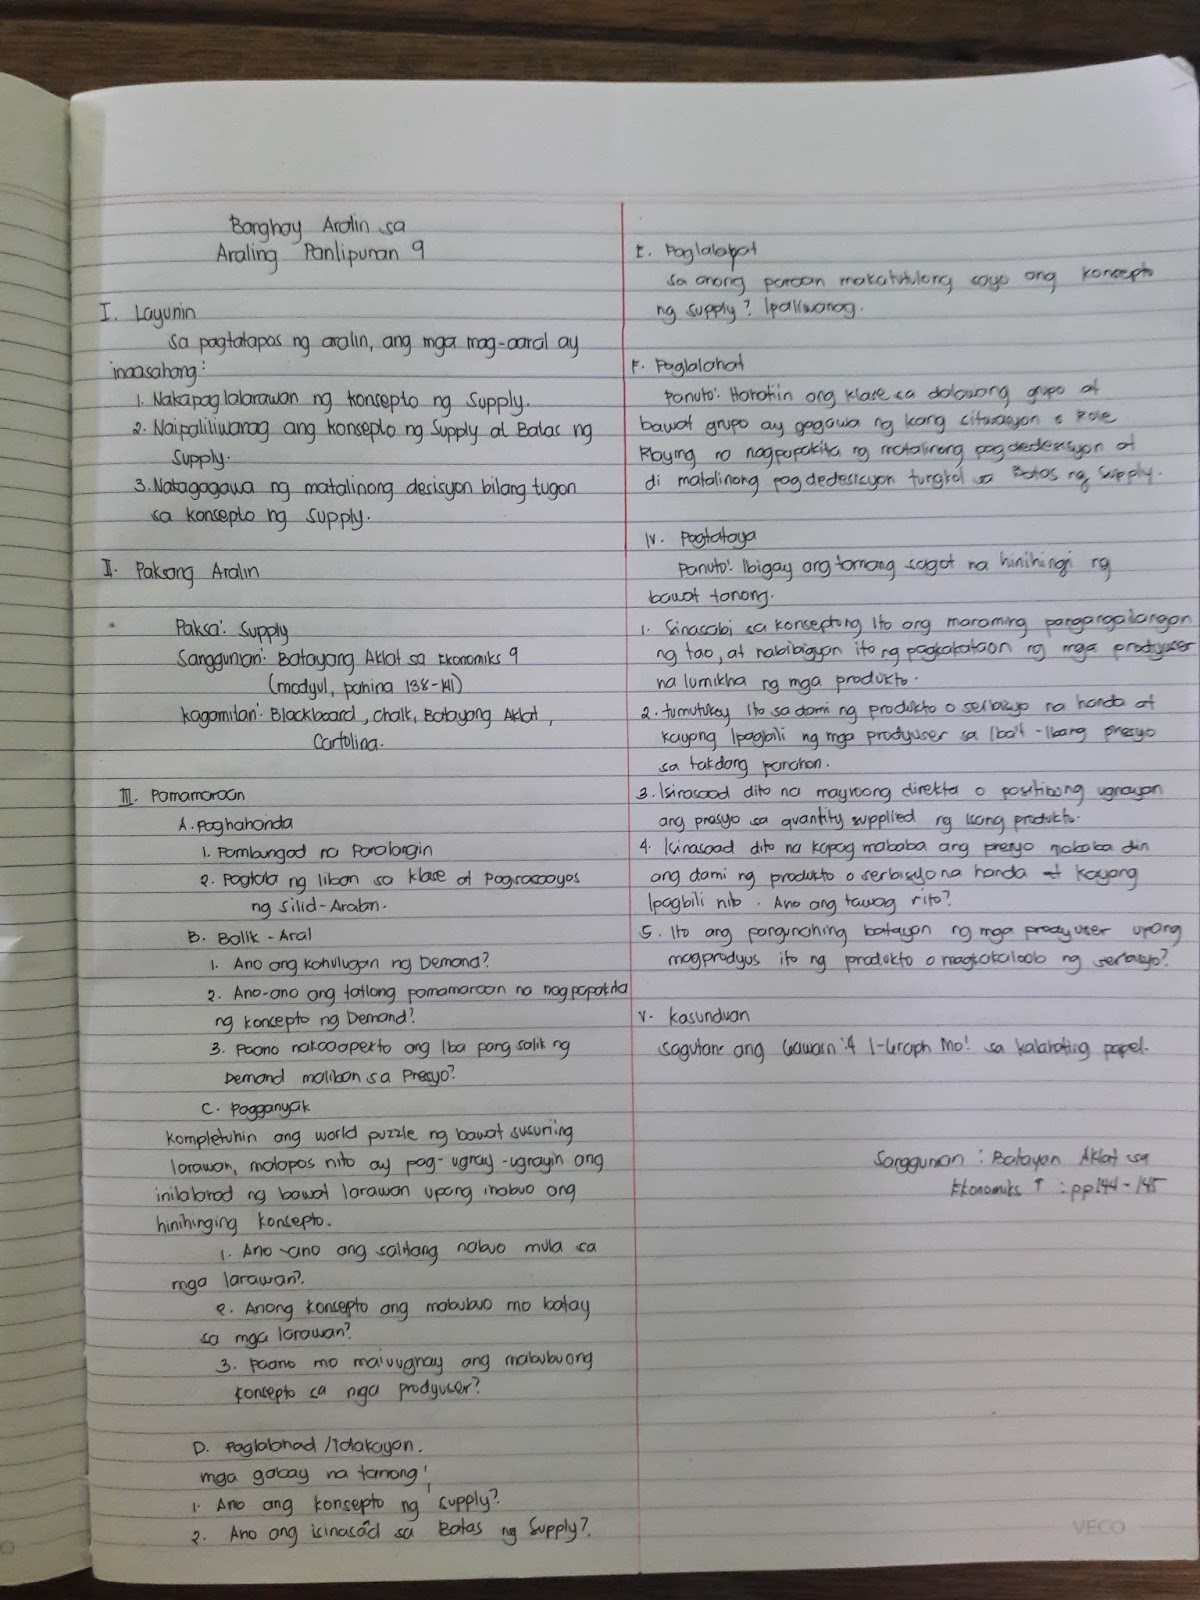 Banghay Aralin sa
Araling Panlipunan 9
I. Layunin
Sa pagtatapos ng aralin, ang mga mag-aaral ay
inaasahang:
1. Nakapaglalarawan ng konsepto ng Supply.
2. Naipaliliwanag ang konsepto ng Supply at Batas ng
Supply.
3. Natagagawa ng matalinong desisyon bilang tugon
sa konsepto ng supply.
II. Paksang Aralin
Paksa: Supply
Sanggunian: Batayang Aklat sa Ekonomiks 9
(modyul, pahina 138-141)
Kagamitan: Blackboard, chalk, Batayang Aklat,
Cartolina.
III. Pamamaraan
A. Paghahanda
1. Pambungad na Panalangin
2. Pagtala ng liban sa klase at Pagsasaayos
ng Silid-Aralan.
B. Balik-Aral
1. Ano ang kahulugan ng Demand?
2. Ano-ano ang tatlong pamamaraan na nagpapakita
ng koncepto ng Demand?
3. Paano nakaaapekto ang Iba pang salik ng
Demand maliban sa Presyo?
C. Pagganyak
Kompletuhin ang world puzzle ng bawat susuriing
larawan, matapos nito ay pag-ugnay-ugnayin ang
inilalarad ng bawat larawan upang mabuo ang
hinihinging konsepto.
1. Ano-ano ang salitang nabuo mula sa
mga larawan?
2. Anong konsepto ang mabubuo mo batay
sa mga larawan?
3. Paano mo maiuugnay ang mabubuong
konsepto sa mga prodyuser?
D. Paglalahad /Talakayan.
mga gabay na tanong:
1. Ano ang konsepto ng supply?
2. Ano ang isinasaad sa Batas ng Supply?
E. Paglalapat
sa anong paraan makatutulong sayo ang konsepto
ng supply? Ipaliwanag.
F. Paglalahat
Panuto: Hahatiin ang klase sa dalawang grupo at
bawat grupo ay gagawa ng isang sitwasyon o Role
Playing na nagpapakita ng matalinong pagdedesisyon at
di matalinong pagdedesisyon tungkol sa Batas ng supply.
IV. Pagtataya
Panuto: Ibigay ang tamang sagot na hinihingi ng
bawat tanong.
1. Sinasabi sa konseptong Ito ang maraming pangangailangan
ng tao, at nabibigyan ito ng pagkakataon ng mga prodyuser
na lumikha ng mga produkto.
2. tumutukoy Ito sa dami ng produkto o serbisyo na handa at
kayang Ipagbili ng mga prodyuser sa Iba't-Ibang presyo
sa takdang panahon.
3. Isinasaad dito na mayroong direkta o positibong ugnayan
ang presyo sa quantity supplied ng Isang produkto.
4. Isinasaad dito na kapag mababa ang presyo mababa din
ang dami ng produkto o serbisyo na handa at kayang
Ipagbili nito. Ano ang tawag rito?
5. Ito ang pangunahing batayan ng mga prodyuser upang
magprodyus ito ng produkto o magkakaloob ng serbisyo?
V. Kasunduan
Sagutang ang Gawain:4 I-Graph Mo! sa kalahating papel.
Sanggunian: Batayan Aklat sa
Ekonomiks : pp144-145
VECO